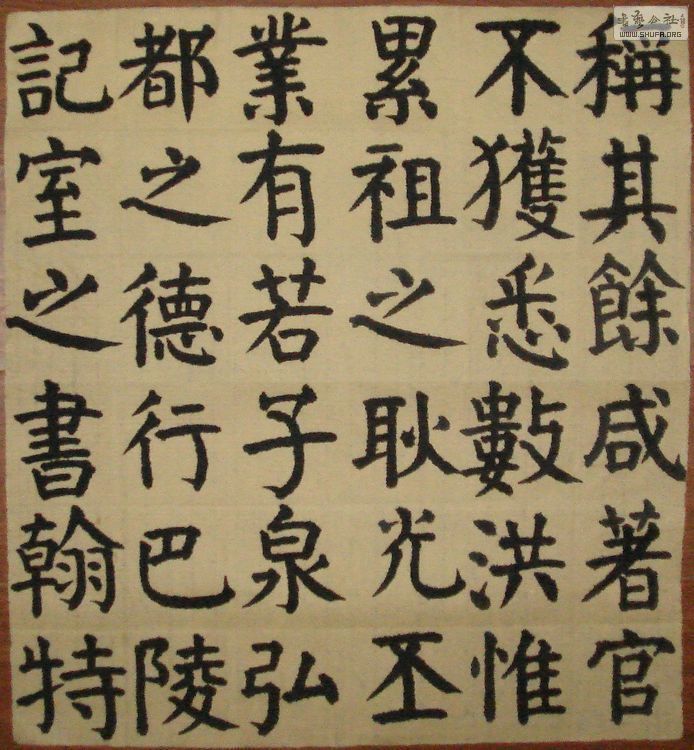 稱其餘咸著官
不獲悉數洪惟
累祖之耿光丕
業有若子泉弘
都之德行巴陵
記室之書翰特
WWW.SHUFA.ORG